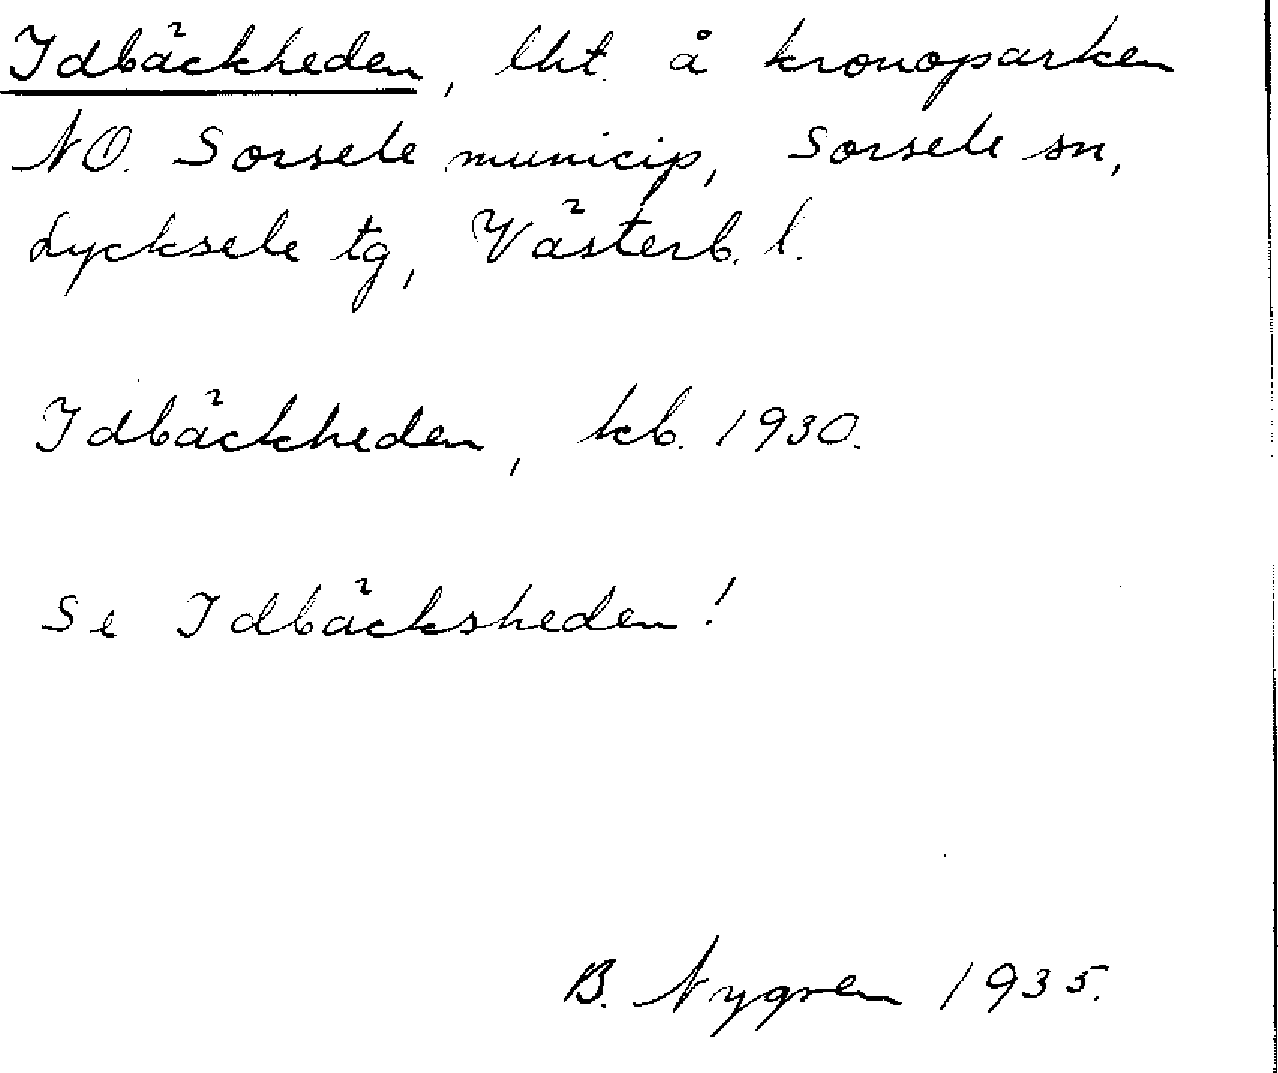 Idbäckheden, lht. å kronoparken
NO. Sorsele municip, Sorsele sn,
Lycksele tg, Västerb. l.
Idbäckheden, kb. 1930.
Se Idbäcksheden!
B. Nygren 1935.